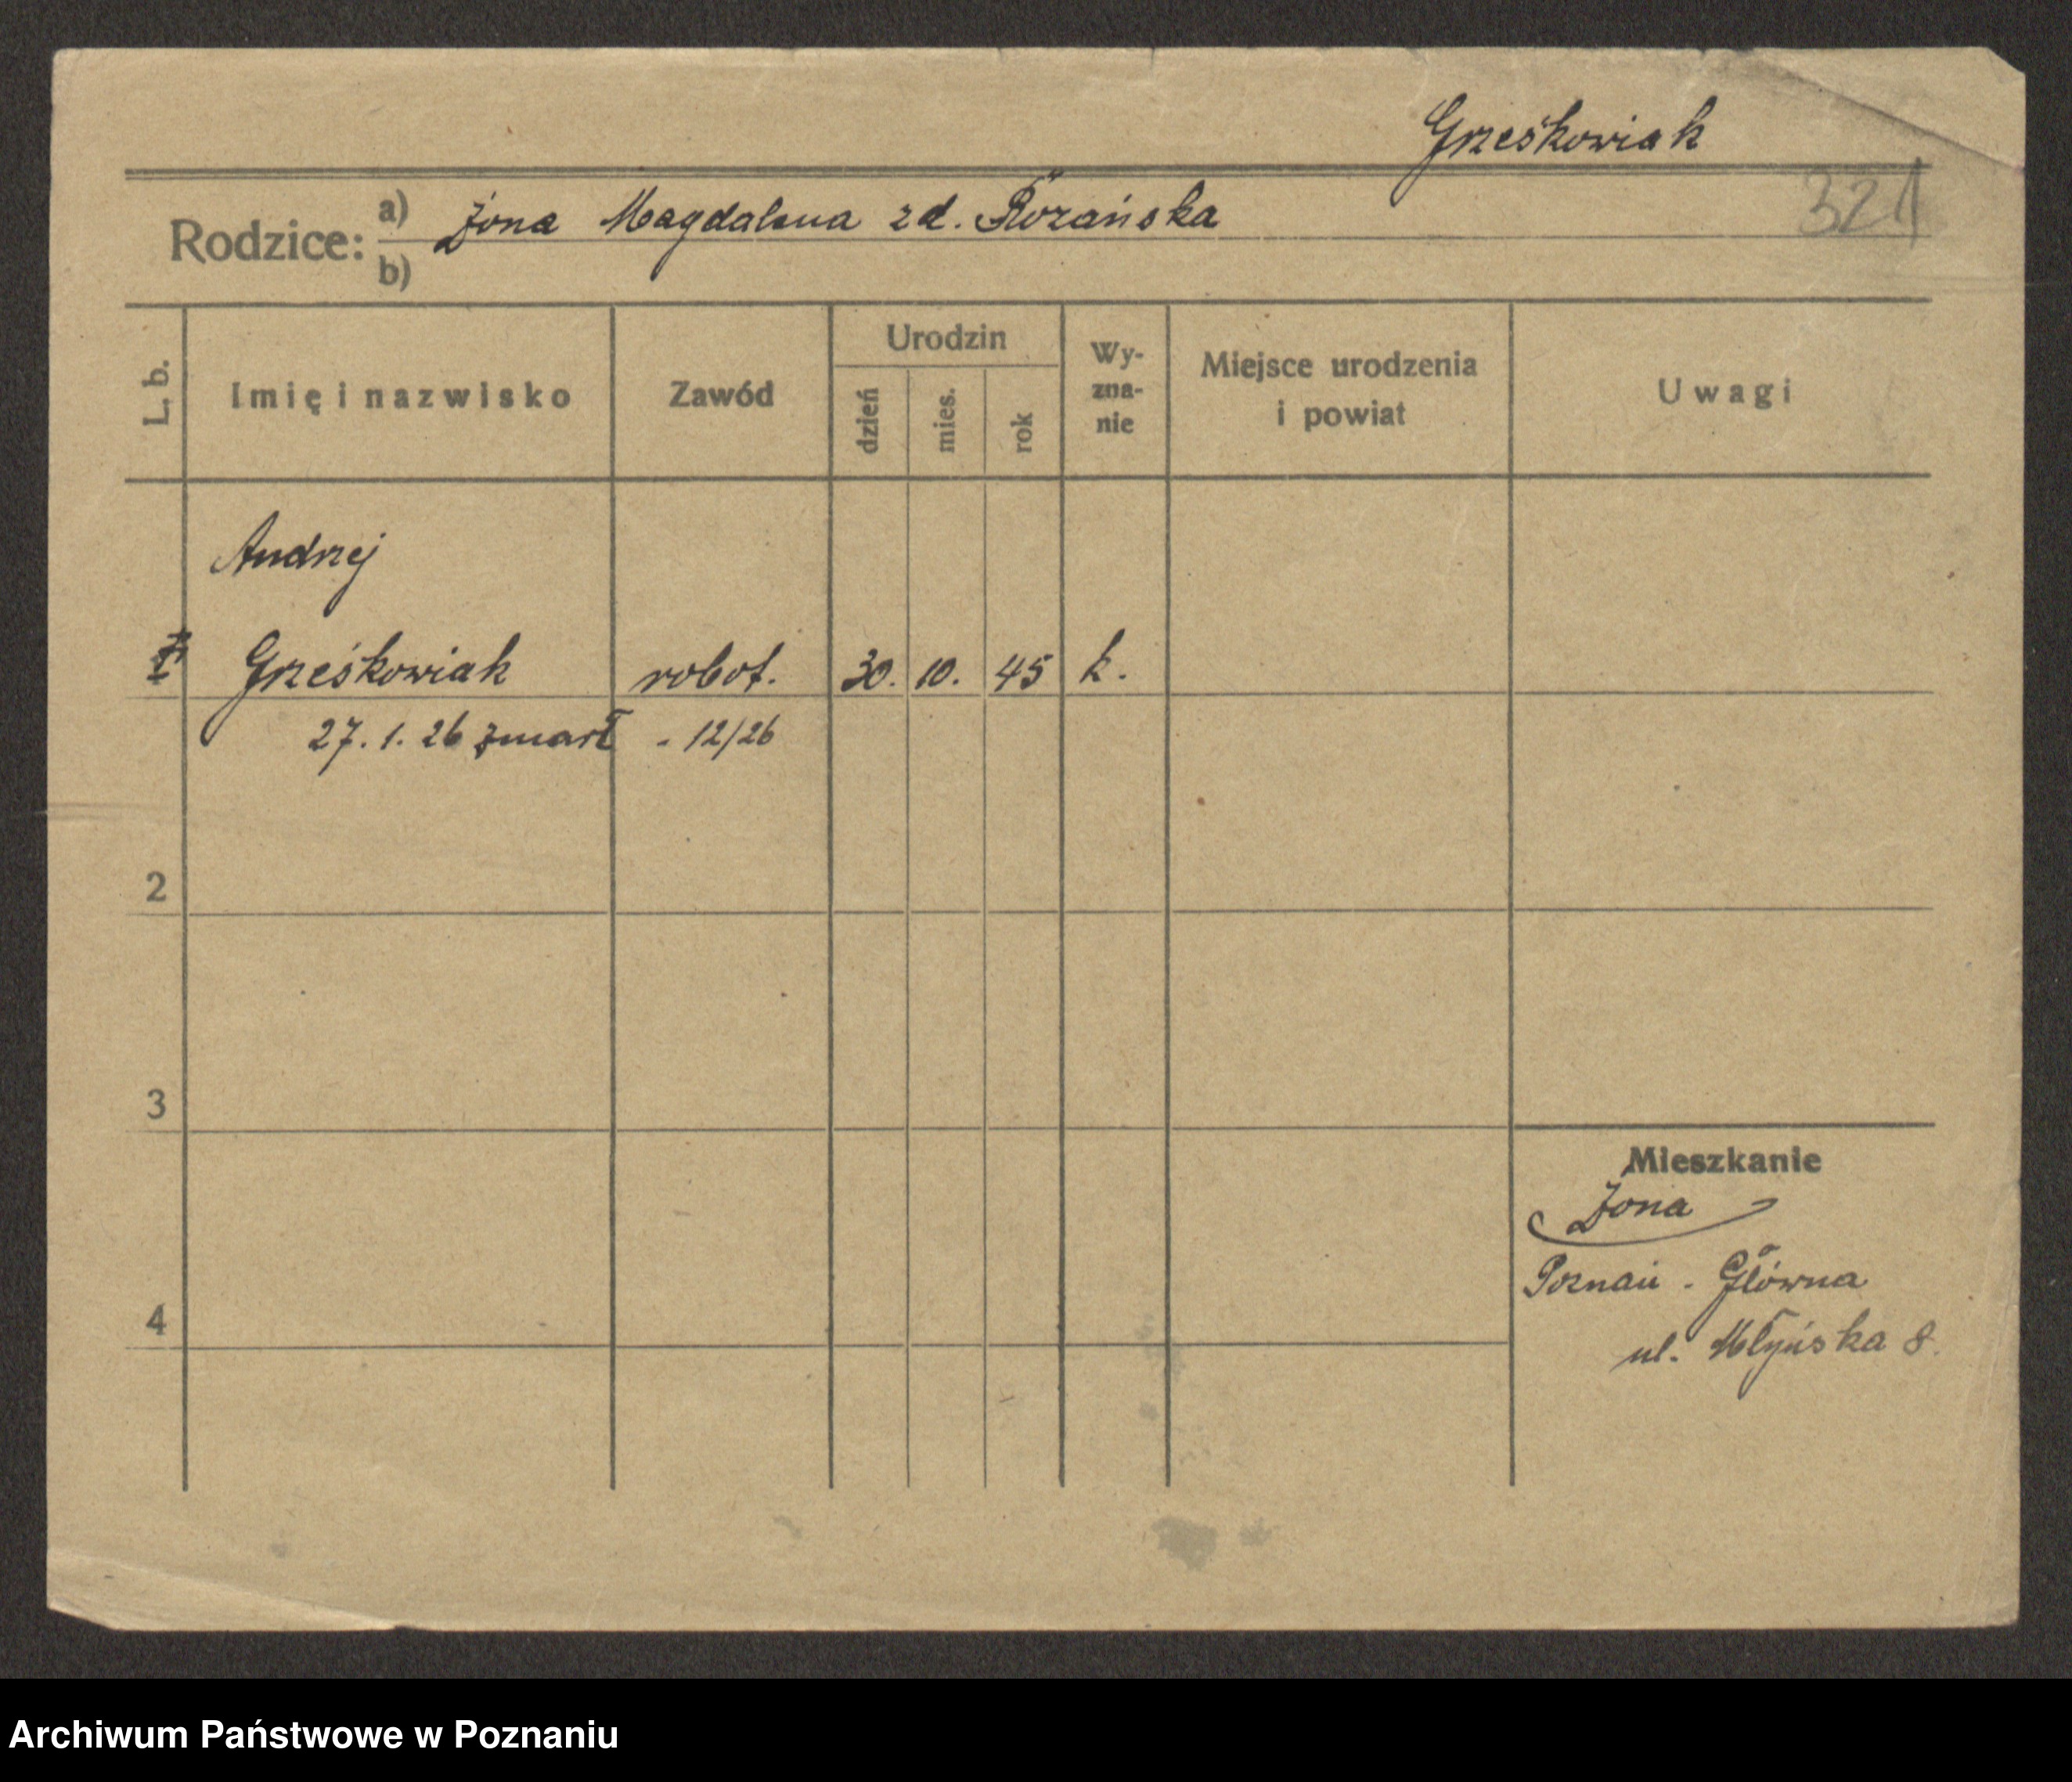 Grześkowiak
321
Rodzice: a) Żona Magdalena zd. Różańska
b)
L. b.
Imię i nazwisko
Zawód
Urodzin
dzień
mies.
rok
Wy-
zna-
nie
Miejsce urodzenia
i powiat
Uwagi
Andrzej
Grześkowiak robot. 30. 10. 45 k.
27. 1. 26 zmarł - 12/26
2
3
4
Mieszkanie
Żona
Poznań - Główna
ul. Młyńska 8.
Archiwum Państwowe w Poznaniu